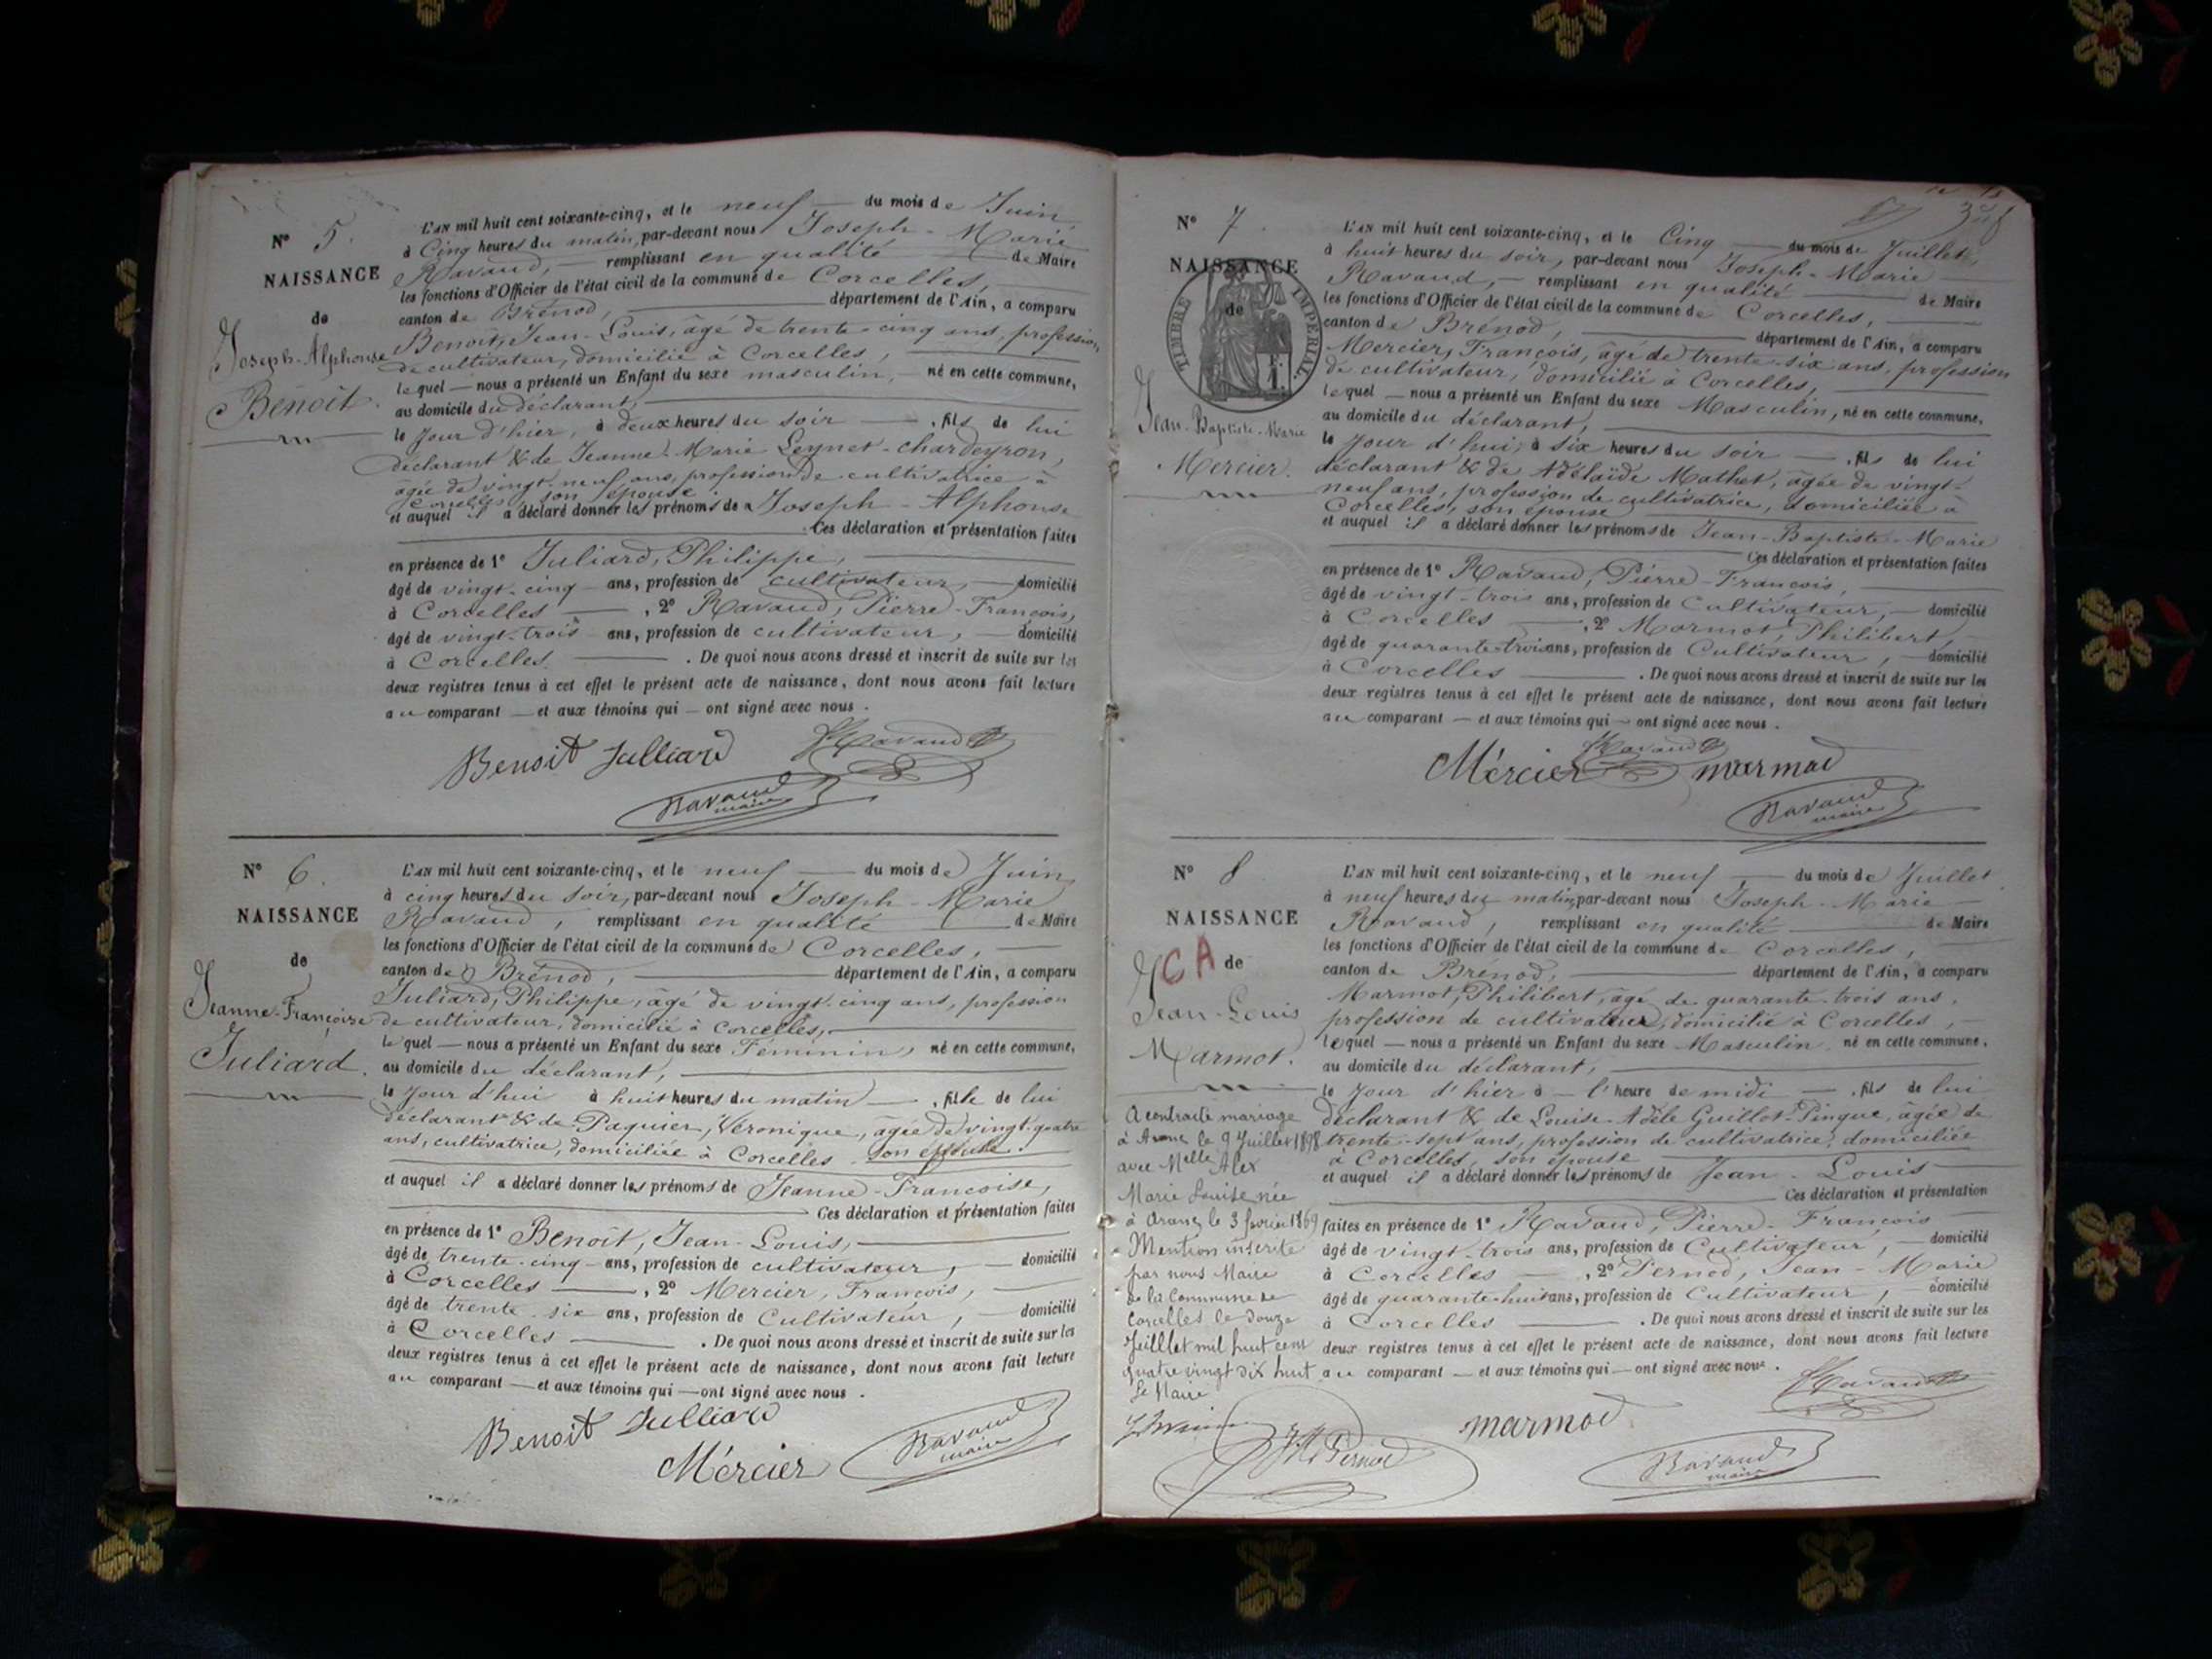 N° 5.
NAISSANCE
de
Joseph-Alphonse
Benoît.
L'AN mil huit cent soixante-cinq, et le neuf du mois de Juin
à Cinq heures du matin, par-devant nous Joseph-Marie
Ravaud, remplissant en qualité de Maire
les fonctions d'Officier de l'état civil de la commune de Corcelles,
canton de Brénod, département de l'Ain, a comparu
Benoit, Jean-Louis, âgé de trente-cinq ans, profession
de cultivateur, domicilié à Corcelles,
lequel nous a présenté un Enfant du sexe masculin, né en cette commune,
au domicile du déclarant,
le jour d'hier, à deux heures du soir, fils de lui
déclarant & de Jeanne-Marie Leynet-Chardeyron,
âgée de vingt-neuf ans, profession de cultivatrice à
Corcelles, son épouse
et auquel il a déclaré donner les prénoms de Joseph-Alphonse
. Ces déclaration et présentation faites
en présence de 1° Juliard, Philippe,
âgé de vingt-cinq ans, profession de cultivateur, domicilié
à Corcelles, 2° Ravaud, Pierre-François,
âgé de vingt-trois ans, profession de cultivateur, domicilié
à Corcelles. De quoi nous avons dressé et inscrit de suite sur les
deux registres tenus à cet effet le présent acte de naissance, dont nous avons fait lecture
au comparant et aux témoins qui ont signé avec nous.
Benoit Julliard Ravaud
Ravaud
maire
N° 6.
NAISSANCE
de
Jeanne-Françoise
Juliard.
L'AN mil huit cent soixante-cinq, et le neuf du mois de Juin
à cinq heures du soir, par-devant nous Joseph-Marie
Ravaud, remplissant en qualité de Maire
les fonctions d'Officier de l'état civil de la commune de Corcelles,
canton de Brénod, département de l'Ain, a comparu
Juliard, Philippe, âgé de vingt-cinq ans, profession
de cultivateur, domicilié à Corcelles,
lequel nous a présenté un Enfant du sexe Féminin, né en cette commune,
au domicile du déclarant,
le jour d'hui à huit heures du matin, fille de lui
déclarant & de Paquier, Véronique, âgée de vingt-quatre
ans, cultivatrice, domiciliée à Corcelles son épouse.
et auquel il a déclaré donner les prénoms de Jeanne-Françoise,
Ces déclaration et présentation faites
en présence de 1° Benoît, Jean-Louis,
âgé de trente-cinq ans, profession de cultivateur, domicilié
à Corcelles, 2° Mercier, François,
âgé de trente-six ans, profession de Cultivateur, domicilié
à Corcelles. De quoi nous avons dressé et inscrit de suite sur les
deux registres tenus à cet effet le présent acte de naissance, dont nous avons fait lecture
au comparant et aux témoins qui ont signé avec nous.
Benoit Julliard
Mércier Ravaud
maire
N° 7.
NAISSANCE
de
TIMBRE IMPÉRIAL
Jean-Baptiste-Marie
Mercier.
L'AN mil huit cent soixante-cinq, et le Cinq du mois de Juillet,
à huit heures du soir, par-devant nous Joseph-Marie
Ravaud, remplissant en qualité de Maire
les fonctions d'Officier de l'état civil de la commune de Corcelles,
canton de Brénod, département de l'Ain, a comparu
Mercier, François, âgé de trente-six ans, profession
de cultivateur, domicilié à Corcelles,
lequel nous a présenté un Enfant du sexe Masculin, né en cette commune,
au domicile du déclarant,
le jour d'hui, à six heures du soir, fils de lui
déclarant & de Adélaïde Mathet, âgée de vingt-
neuf ans, profession de cultivatrice, domiciliée à
Corcelles, son épouse
et auquel il a déclaré donner les prénoms de Jean-Baptiste-Marie
Ces déclaration et présentation faites
en présence de 1° Ravaud, Pierre-François,
âgé de vingt-trois ans, profession de Cultivateur, domicilié
à Corcelles, 2° Marmot, Philibert,
âgé de quarante-trois ans, profession de Cultivateur, domicilié
à Corcelles. De quoi nous avons dressé et inscrit de suite sur les
deux registres tenus à cet effet le présent acte de naissance, dont nous avons fait lecture
au comparant et aux témoins qui ont signé avec nous.
Mércier Ravaud marmod
Ravaud
maire
N° 8
NAISSANCE
CA de
Jean-Louis
Marmot.
A contracté mariage
à Aranc le 9 Juillet 1898
avec Melle Alex
Marie Louise née
à Aranc le 3 février 1869
Mention inscrite
par nous Maire
de la Commune de
Corcelles le douze
Juilllet mil huit cent
quatre vingt dix huit
Le Maire
L'AN mil huit cent soixante-cinq, et le neuf du mois de Juillet
à neuf heures du matin, par-devant nous Joseph-Marie
Ravaud, remplissant en qualité de Maire
les fonctions d'Officier de l'état civil de la commune de Corcelles,
canton de Brénod, département de l'Ain, a comparu
Marmot, Philibert, âgé de quarante-trois ans,
profession de cultivateur, domicilié à Corcelles,
lequel nous a présenté un Enfant du sexe Masculin, né en cette commune,
au domicile du déclarant,
le jour d'hier à l'heure de midi, fils de lui
déclarant & de Louise-Adèle Guillot-Pingue, âgée de
trente-sept ans, profession de cultivatrice, domiciliée
à Corcelles, son épouse
et auquel il a déclaré donner les prénoms de Jean-Louis
Ces déclaration et présentation
faites en présence de 1° Ravaud, Pierre-François
âgé de vingt-trois ans, profession de Cultivateur, domicilié
à Corcelles, 2° Pernod, Jean-Marie
âgé de quarante-huit ans, profession de Cultivateur, domicilié
à Corcelles. De quoi nous avons dressé et inscrit de suite sur les
deux registres tenus à cet effet le présent acte de naissance, dont nous avons fait lecture
au comparant et aux témoins qui ont signé avec nous.
Pernod marmod Ravaud
Ravaud
maire